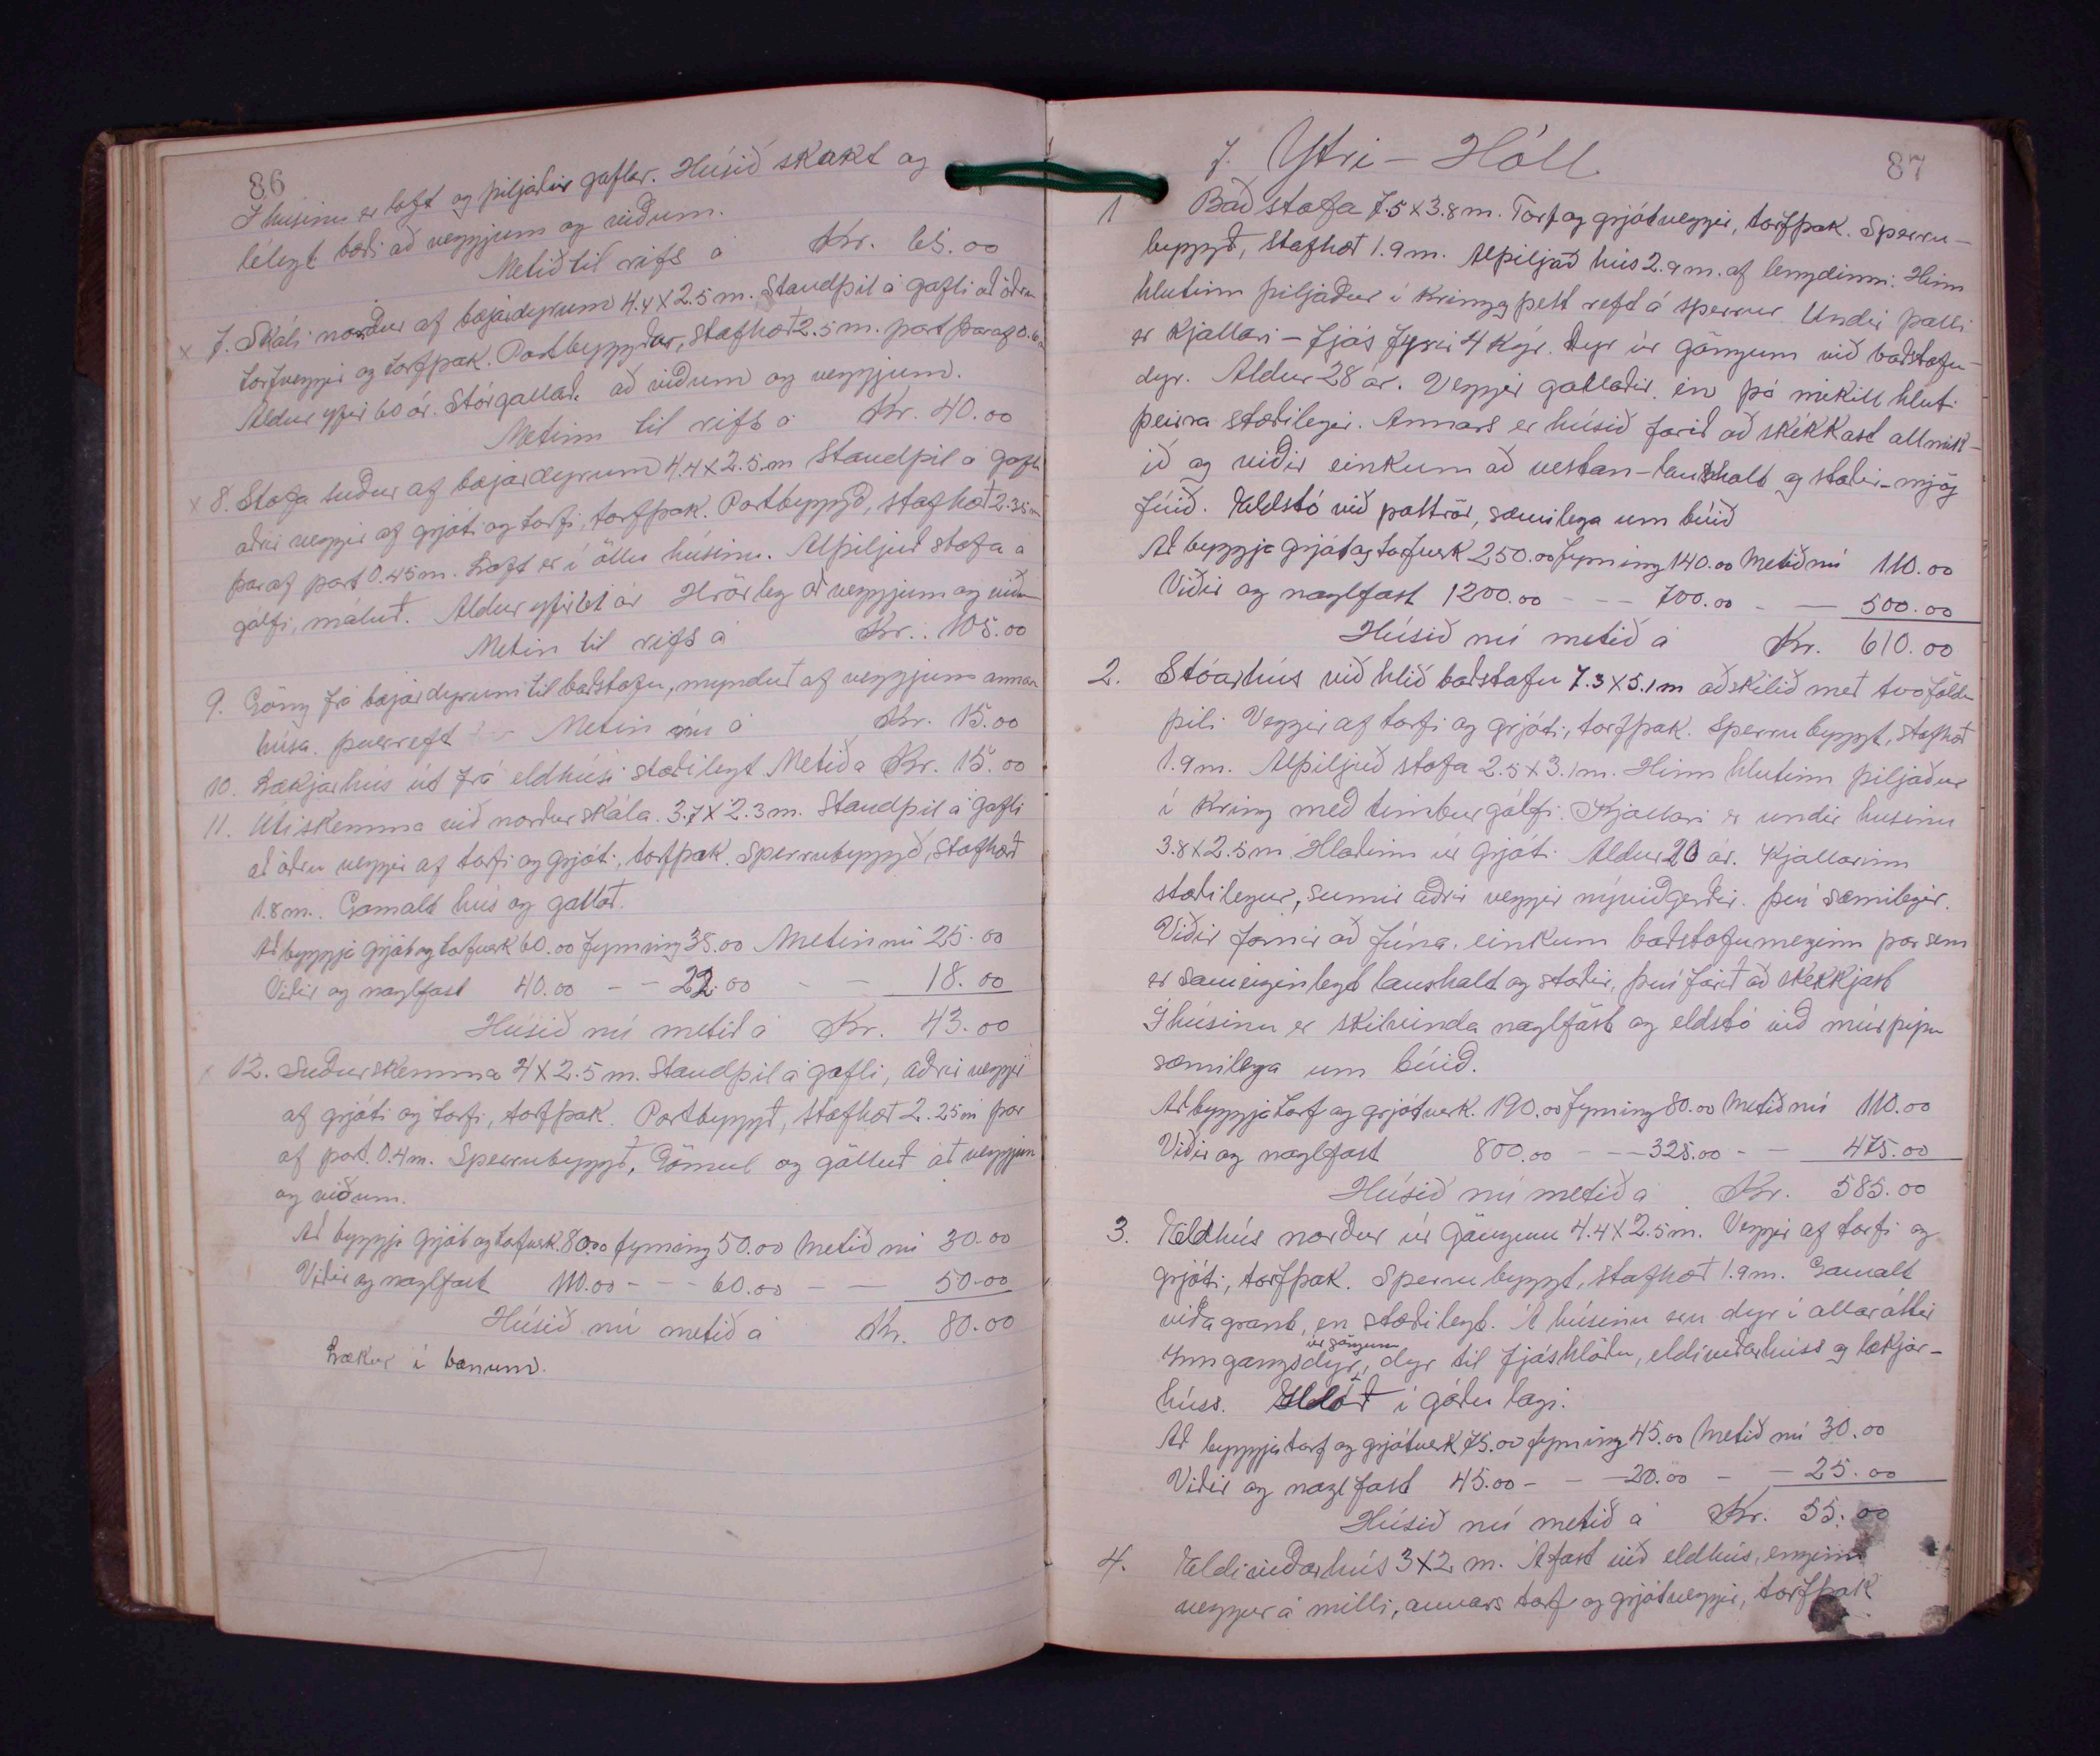 86
Í húsinu er loft og þiljaðir gaflar. Húsið skakt og
lélegt bæði að veggjum og viðum.
Metið til rifs á Kr. 65.00
x 7. Skáli norður af bæjardyrum 4.4 x 2.5 m. Standþil á gafli að öðru
torfveggir og torfþak. Portbyggður, stafhæð 2.5 m. port þaraf 0.6 m
Aldur yfir 60 ár. Stórgallað að viðum og veggjum.
Metinn til rifs á Kr. 40.00
x 8. Stofa suður af bæjardyrum 4.4 x 2.5 m Standþil á gafli
aðrir veggir af grjóti og torfi, torfþak. Portbyggð, stafhæð 2.35 m
þar af port 0.45 m. Loft er í öllu húsinu. Alþiljuð stofa á
gólfi, máluð. Aldur yfir 61 ár Hrörleg að veggjum og viðum
Metin til rifs á Kr. 105.00
9. Göng frá bæjardyrum til baðstofu, mynduð af veggjum annara
húsa. þverreft Metin nú á Kr. 15.00
10. Lækjarhús út frá eldhúsi stæðilegt Metið á Kr. 15.00
11. Útiskemma við norðurskála. 3.7 x 2.3 m. Standþil á gafli
að öðru veggir af torfi og grjóti, torfþak. Sperrubyggð, stafhæð
1.8 m. Gamalt hús og gallað.
Að byggja grjót og torfverk 60.00 fyrning 35.00 Metin nú 25.00
Viðir og naglfast 40.00 - - 22.00 - - 18.00
Húsið nú metið á Kr. 43.00
x 12. Suðurskemma 4 x 2.5 m. Standþil á gafli, aðrir veggir
af grjóti og torfi, torfþak. Portbyggð, stafhæð 2.25 m þar
af port 0.4 m. Sperrubyggð, Gömul og gölluð að veggjum
og viðum.
Að byggja grjót og torfverk. 80.00 fyrning 50.00 Metið nú 30.00
Viðir og naglfast 110.00 - - - 60.00 - - 50.00
Húsið nú metið á Kr. 80.00
Lækur í bænum.
87
7. Ytri - Hóll
1 Baðstofa 7.5 x 3.8 m. Torf og grjótveggir, torfþak. Sperru-
byggð, stafhæð 1.9 m. Alþiljað hús 2.9 m. af lengdinni. Hinn
hlutinn þiljaður í kring og þétt reft á sperrur. Undir palli
er kjallari - fjós fyrir 4 kýr. Dyr úr göngum við baðstofu-
dyr. Aldur 28 ár. Veggir gallaðir. en þó mikill hluti
þeirra stæðilegir. Annars er húsið farið að skekkast allmik-
ið og viðir einkum að vestan - laushalt og stoðir - mjög
fúið. Eldstó við pottrör, sæmilega um búið
Að byggja grjót og torfverk 250.00 fyrning 140.00 Metið nú 110.00
Viðir og naglfast 1200.00 - - - 700.00 - - 500.00
Húsið nú metið á Kr. 610.00
2. Stóarhús við hlið baðstofu 7.3 x 5.1 m aðskilið með tvöföldu
þili Veggir af torfi og grjóti, torfþak. Sperrubyggt, stafhæð
1.9 m. Alþiljuð stofa 2.5 x 3.1 m. Hinn hlutinn þiljaður
í kring með timburgólfi. Kjallari er undir húsinu
3.8 x 2.5 m Hlaðinn úr grjóti. Aldur 20 ár. Kjallarinn
stæðilegur, sumir aðrir veggir nýviðgerðir. því sæmilegir.
Viðir farnir að fúna, einkum baðstofumeginn þar sem
er sameiginlegt laushalt og stoðir, því farið að skekkjast
Í húsinu er skilvinda naglföst og eldstó við múrpípu
sæmilega um búið.
Að byggja torf og grjótverk. 190.00 fyrning 80.00 Metið nú 110.00
Viðir og naglfast 800.00 - - - 325.00 - - 475.00
Húsið nú metið á Kr. 585.00
3. Eldhús norður úr göngum 4.4 x 2.5 m. Veggir af torfi og
grjóti, torfþak. Sperrubyggt, stafhæð 1.9 m. Gamalt
viðagrant, en stæðilegt. Á húsinu eru dyr í allar áttir
úr göngum
Inngangsdyr, dyr til fjóshlöðu, eldiviðarhúss og lækjar-
húss. í góðu lagi.
Að byggja torf og grjótverk 75.00 fyrning 45.00 Metið nú 30.00
Viðir og naglfast 45.00 - - - 20.00 - - 25.00
Húsið nú metið á Kr. 55.00
4. Eldiviðarhús 3 x 2 m. Áfast við eldhús, enginn
veggur á milli, annars torf og grjótveggir, torfþak